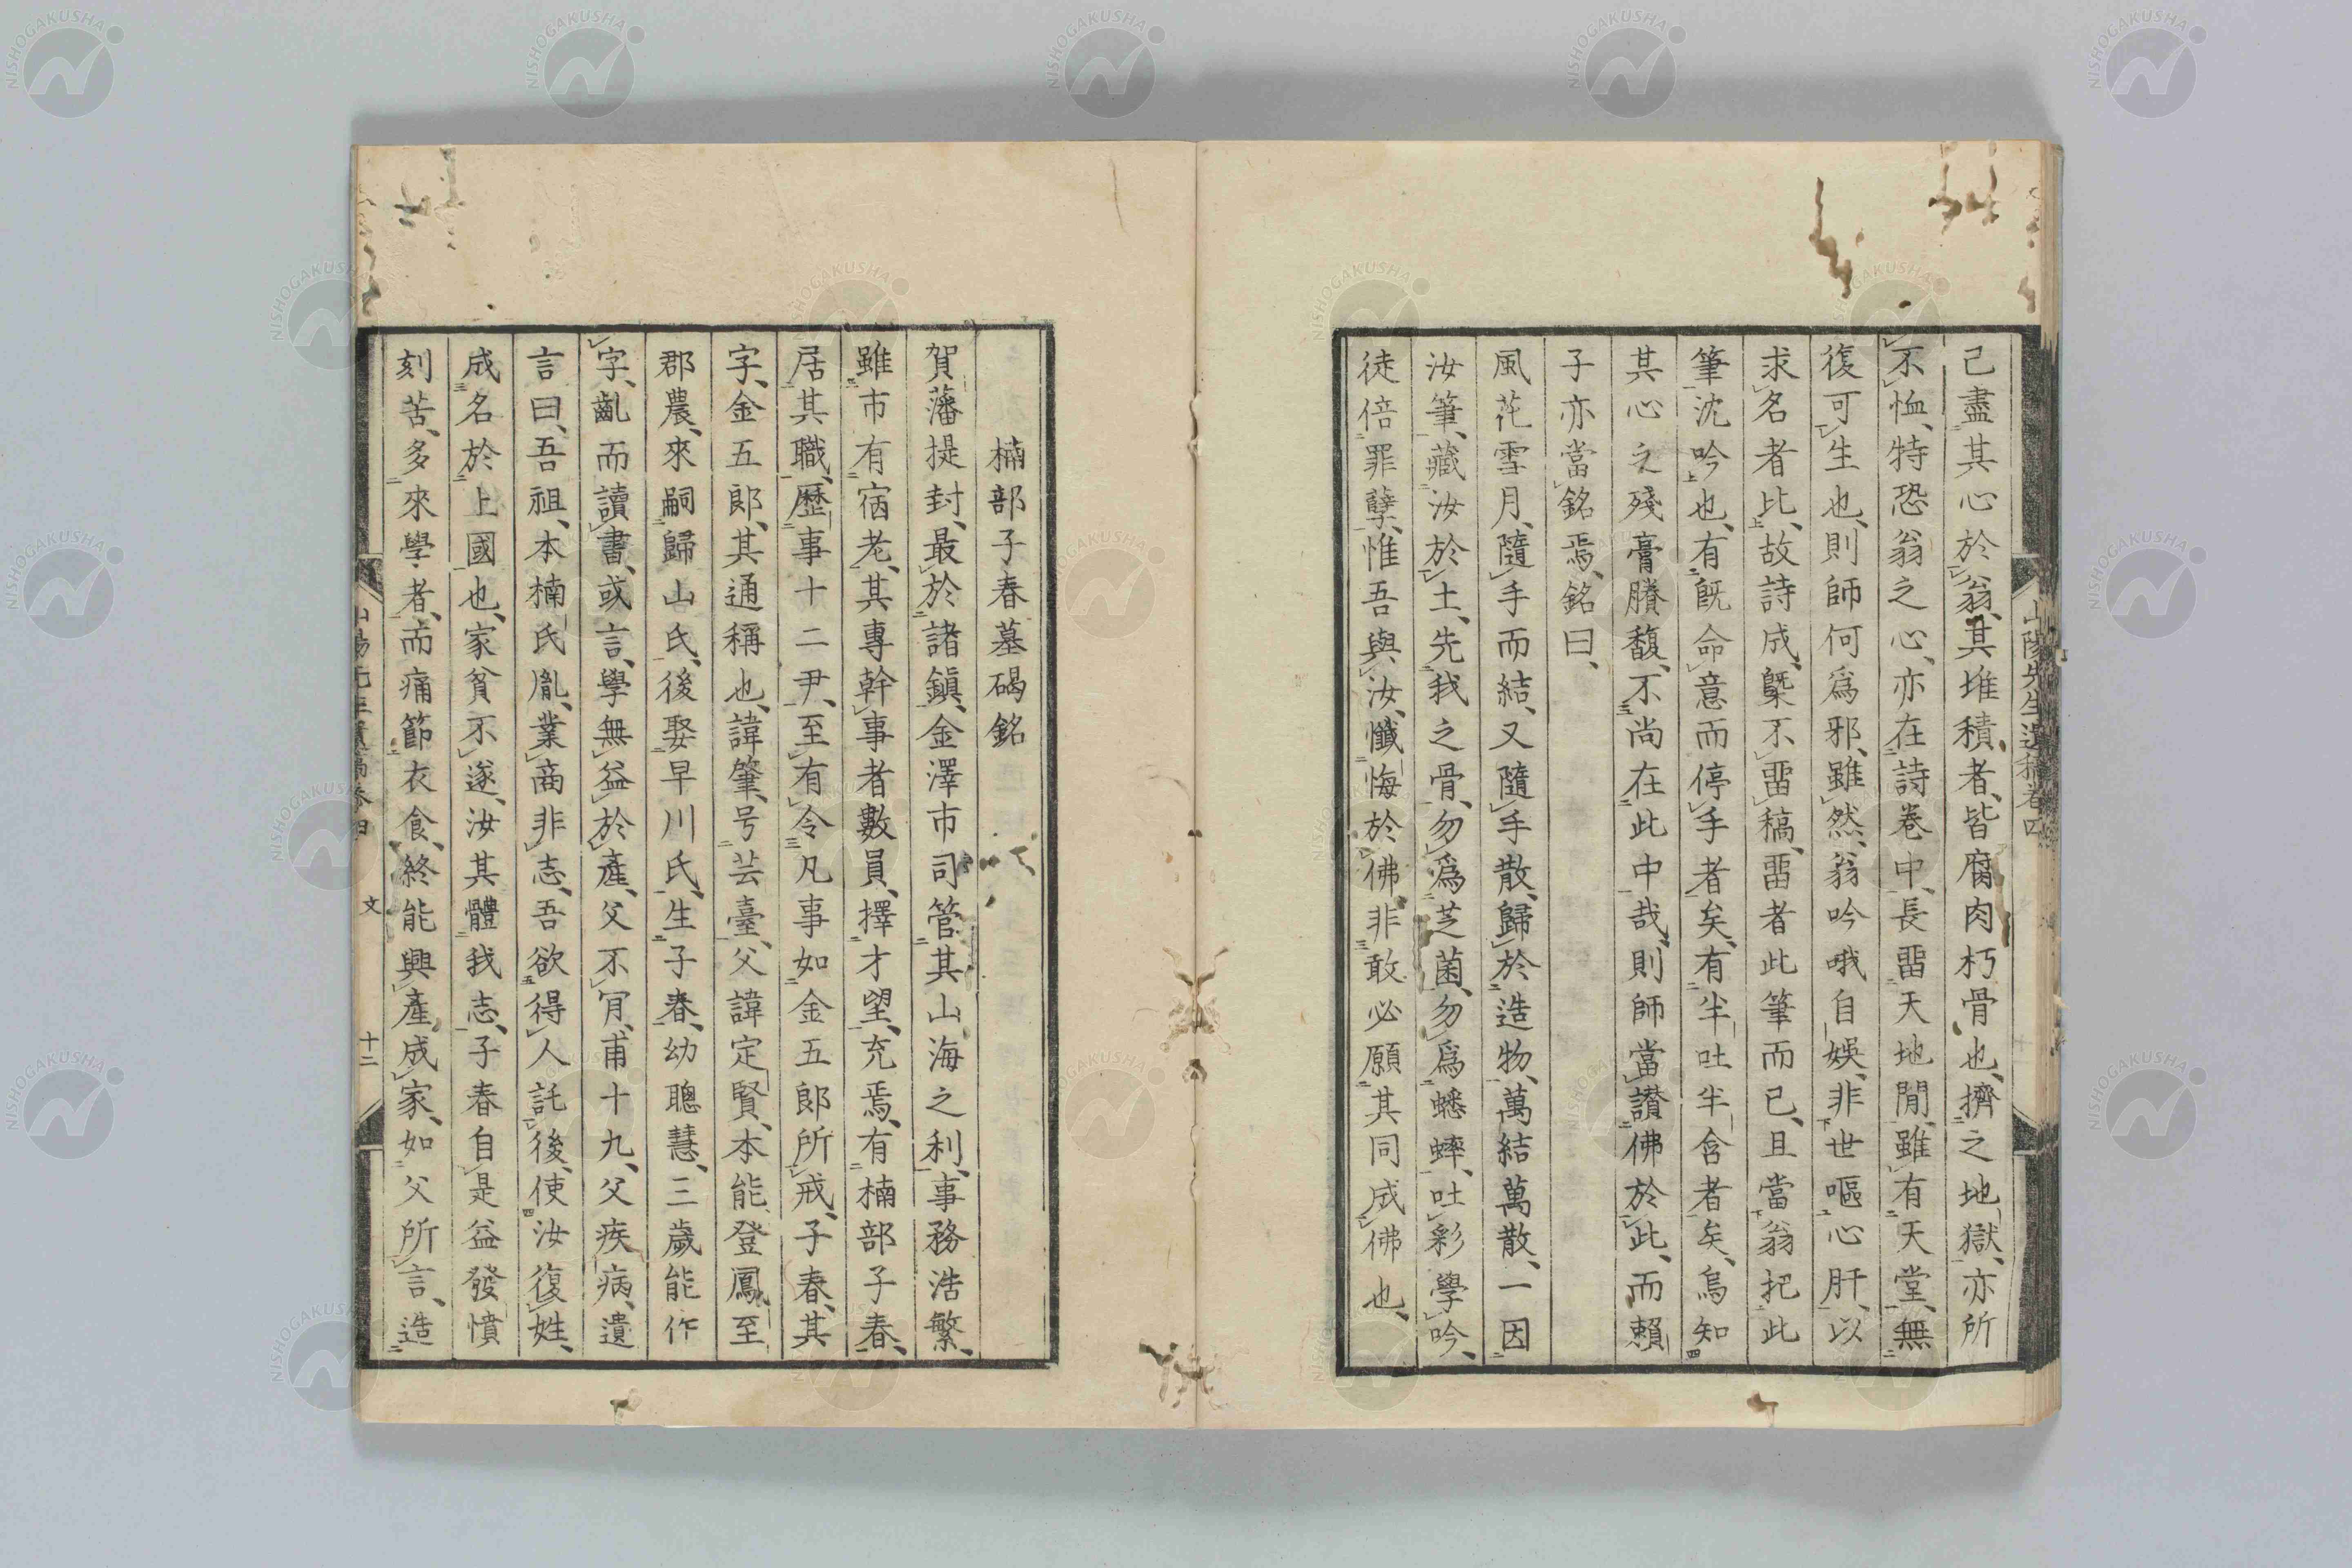 已盡其心於翁、其堆積者、皆腐肉朽骨也、擠之地獄、亦所
不恤、特恐翁之心、亦在詩卷中、長畱天地閒、雖有天堂、無
復可生也、則師何爲邪、雖然、翁吟哦自娛、非世嘔心肝、以
求名者比、故詩成、槩不畱稿、畱者此筆而已、且當翁把此
筆沈吟也、有既命意而停手者矣、有半吐半含者矣、烏知
其心之殘膏賸馥、不尚在此中哉、則師當讃佛於此、而賴
子亦當銘焉、銘曰、
風花雪月、隨手而結、又隨手散、歸於造物、萬結萬散、一因
汝筆、藏汝於土、先我之骨、勿爲芝菌、勿爲蟠蟀、吐彩學吟、
徒倍罪孽、惟吾與汝、懺悔於佛、非敢必願其同成佛也、
山陽先生遺稿卷四
楠部子春墓碣銘
賀藩提封、最於諸鎭、金澤市司管其山海之利、事務浩繁、
雖市有宿老、其專幹事者數員、擇才望、充焉、有楠部子春、
居其職、歷事十二尹、至有令凡事如金五郎所戒、子春、其
字、金五郎、其通稱也、諱肇、号芸臺、父諱定賢、本能登鳳至
郡農、來嗣歸山氏、後娶早川氏、生子春、幼聰慧、三歲能作
字、齓而讀書、或言、學無益於產、父不肎、甫十九、父疾病、遺
言曰、吾祖、本楠氏胤、業商非志、吾欲得人託後、使汝復姓、
成名於上國也、家貧不遂、汝其體我志、子春自是益發憤
刻苦、多來學者、而痛節衣食、終能興產成家、如父所言、造
山陽先生遺稿卷四 文 十二
NISHOGAKUSHA